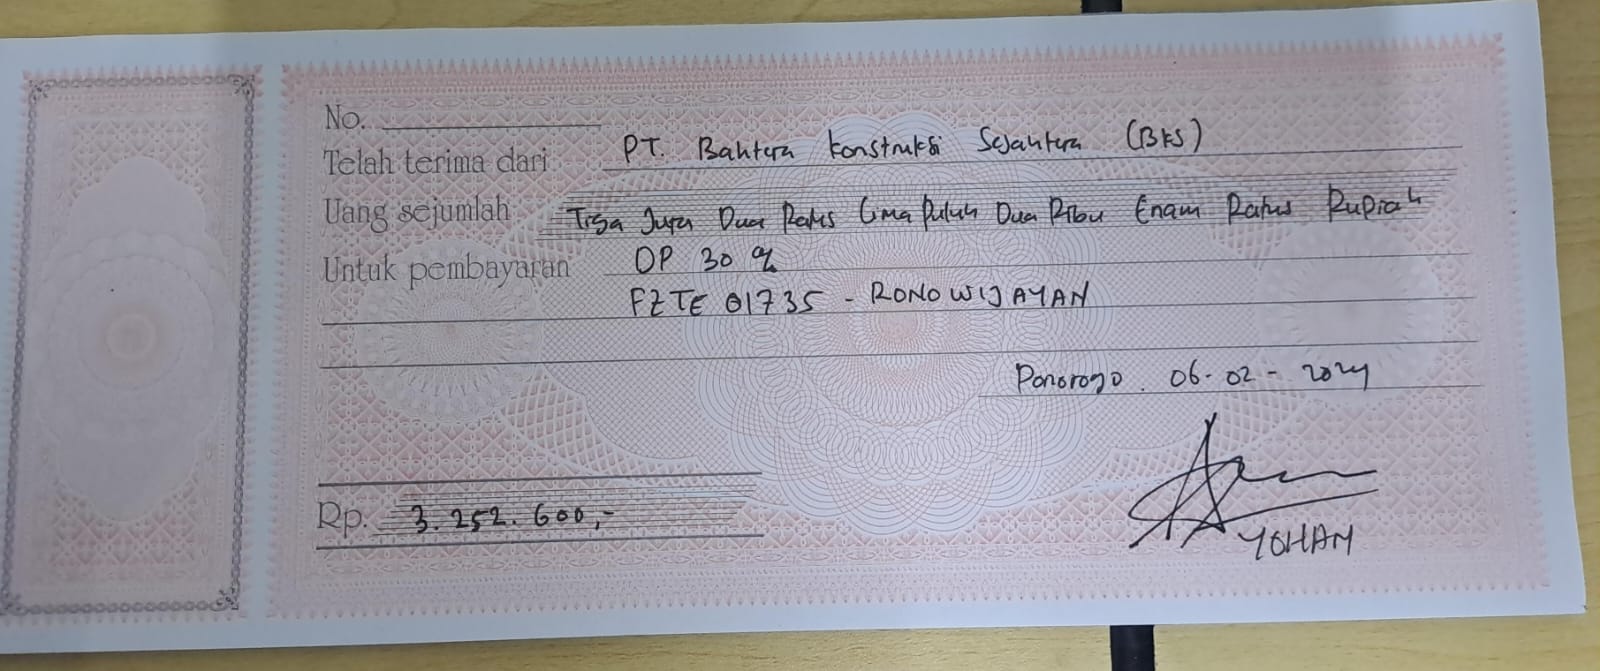 No.
Telah terima dari PT. Bahtera Konstruksi Sejahtera (BKS)
Uang sejumlah Tiga Juta Dua Ratus Lima Puluh Dua Ribu Enam Ratus Rupiah
Untuk pembayaran DP 30 %
FZTE 01735 - RONOWIJAYAN
Ponorogo. 06-02-2024
Rp. 3.252.600,-
YOHAN